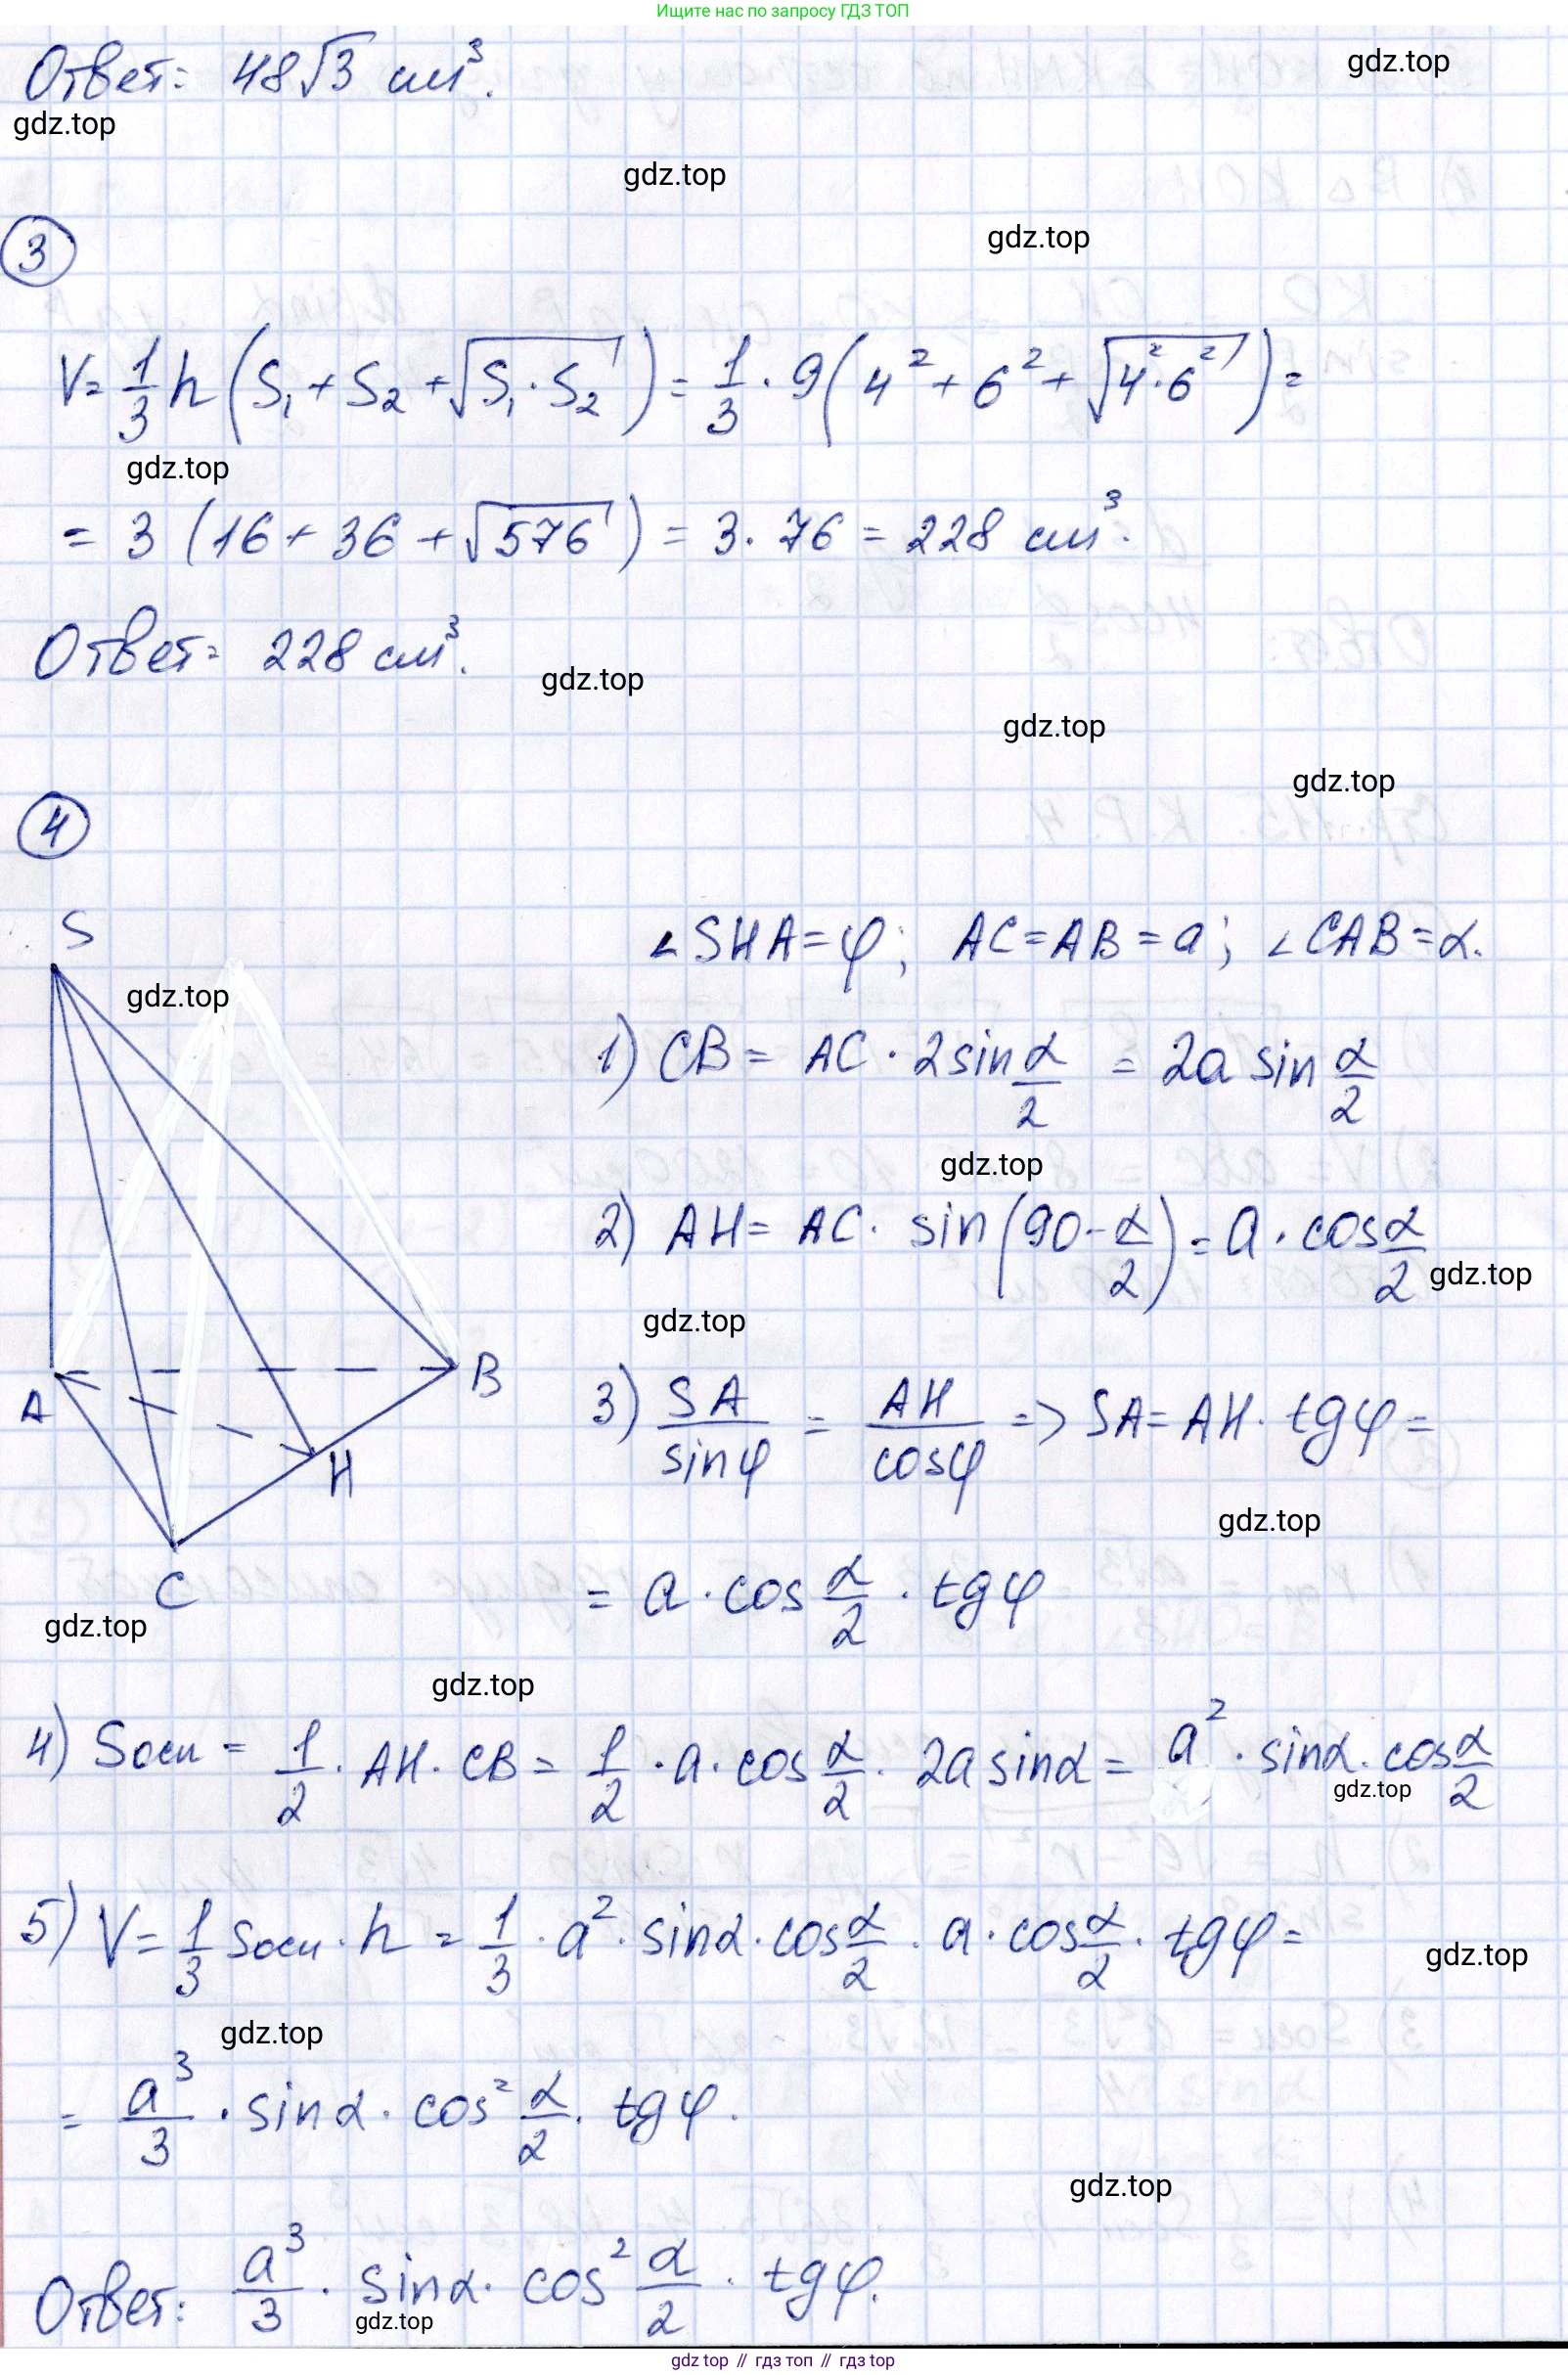 Ищите нас по запросу ГДЗ ТОП
Ответ: 48√3 см³.
gdz.top
gdz.top
gdz.top
gdz.top
3
V = 1/3 h (S₁ + S₂ + √(S₁ · S₂)) = 1/3 · 9 (4² + 6² + √(4² · 6²)) =
gdz.top
= 3 (16 + 36 + √576) = 3 · 76 = 228 см³.
Ответ: 228 см³.
gdz.top
gdz.top
gdz.top
4
S
A
B
H
C
gdz.top
∠SHA = φ; AC = AB = a; ∠CAB = α.
1) CB = AC · 2 sin α/2 = 2a sin α/2
gdz.top
2) AH = AC · sin (90 - α/2) = a · cos α/2
gdz.top
gdz.top
3) SA/sin φ = AH/cos φ => SA = AH · tg φ =
gdz.top
= a · cos α/2 · tg φ
gdz.top
gdz.top
4) Sосн = 1/2 · AH · CB = 1/2 · a · cos α/2 · 2a sin α = a² · sin α · cos α/2
gdz.top
5) V = 1/3 Sосн · h = 1/3 · a² · sin α · cos α/2 · a · cos α/2 · tg φ =
gdz.top
gdz.top
= a³/3 · sin α · cos² α/2 · tg φ.
gdz.top
Ответ: a³/3 · sin α · cos² α/2 · tg φ.
gdz.top
gdz top // гдз топ // гдз top